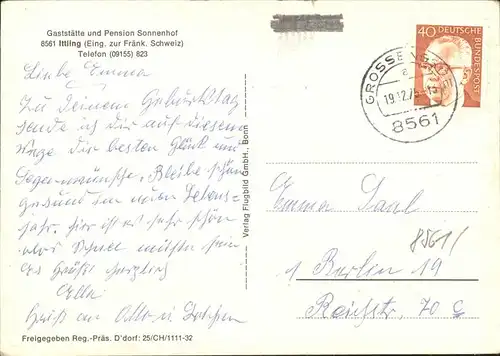 Gaststätte und Pension Sonnenhof
8561 Ittling (Eing. zur Fränk. Schweiz)
Telefon (09155) 823
Liebe Emma
Zu Deinem Geburtstag
sende ich Dir auf diesem
Wege die besten Glück und
Segenswünsche, Bleibe schön
Gesund im neuen Lebens-
jahr. Hier ist es sehr schön
aber Schnee müßte sein
Es Grüßt herzlich
Elli
Gruß an Otto u.
Freigegeben Reg.-Präs. D'dorf: 25/CH/1111-32
Verlag Flugbild GmbH., Bonn
40 DEUTSCHE
BUNDESPOST
GROSSE
a
19.12.75-15
8561
Emma Paul
8561/
1 Berlin 19
Reichstr. 70 c